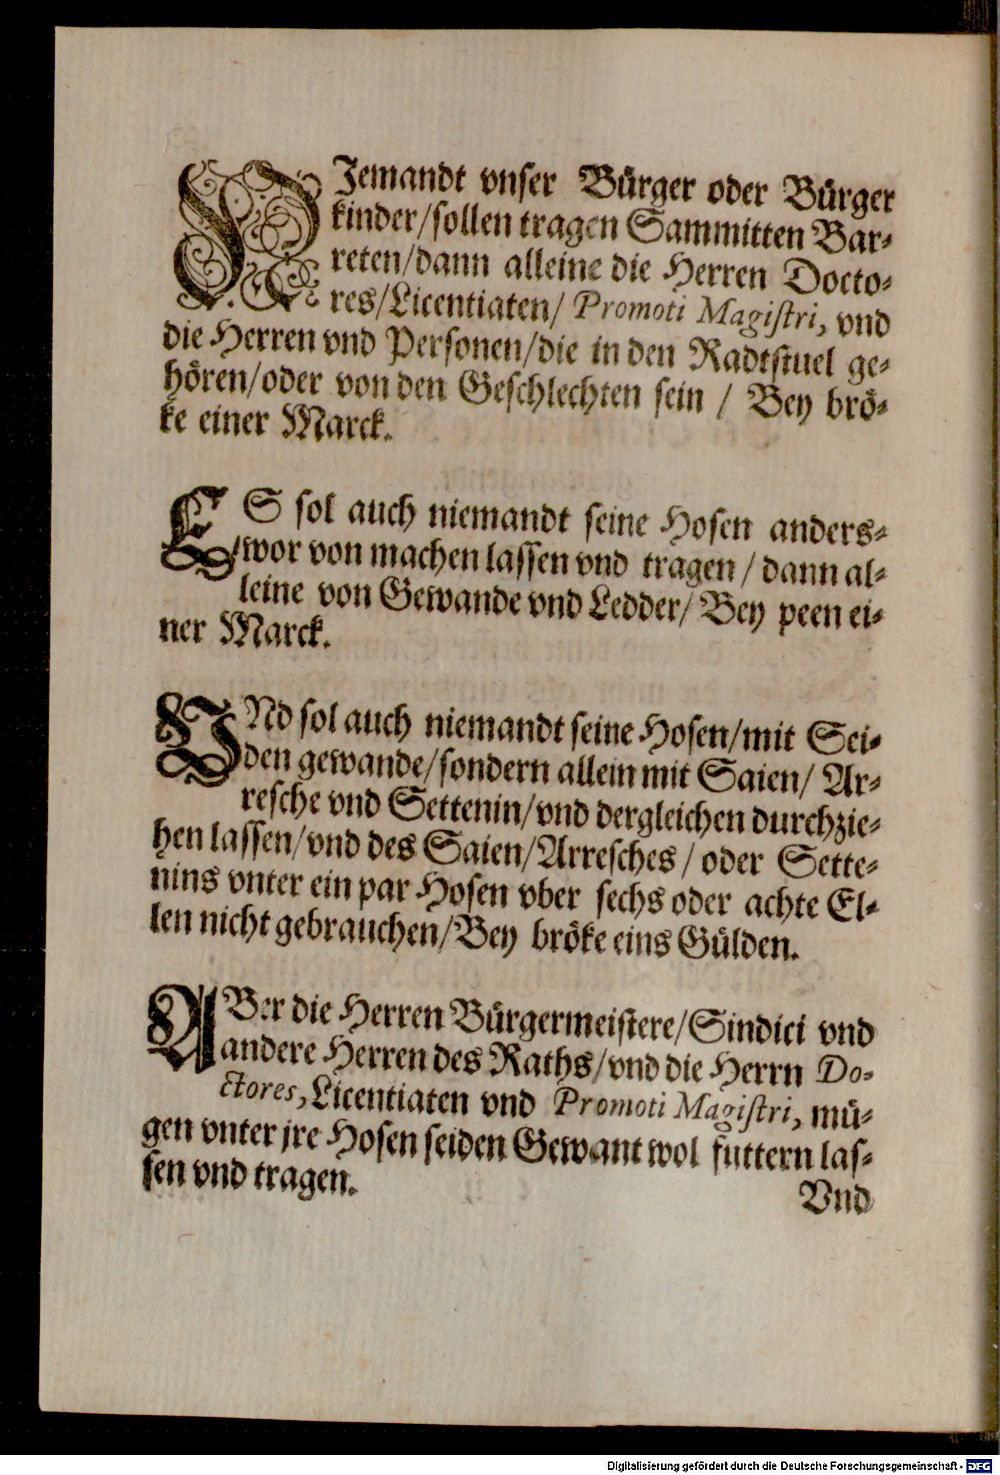 NJemandt vnser Bürger oder Bürger
kinder/sollen tragen Sammitten Bar⸗
reten/dann alleine die Herren Docto⸗
res/Licentiaten/ Promoti Magistri, vnd
die Herren vnd Personen/die in den Radtstuel ge⸗
hören/oder von den Geschlechten sein / Bey brö⸗
ke einer Marck.
ES sol auch niemandt seine Hosen anders⸗
wor von machen lassen vnd tragen / dann al⸗
leine von Gewande vnd Ledder/ Bey peen ei⸗
ner Marck.
VNd sol auch niemandt seine Hosen/mit Sei⸗
den gewande/sondern allein mit Saien/ Ar⸗
resche vnd Settenin/vnd dergleichen durchzie⸗
hen lassen/vnd des Saien/Arresches / oder Sette⸗
nins vnter ein par Hosen vber sechs oder achte El⸗
len nicht gebrauchen/Bey bröke eins Gülden.
ABer die Herren Bürgermeistere/Sindici vnd
andere Herren des Raths/vnd die Herrn Do⸗
ctores, Licentiaten vnd Promoti Magistri, mü⸗
gen vnter jre Hosen seiden Gewant wol futtern las⸗
sen vnd tragen.
Vnd
Digitalisierung gefördert durch die Deutsche Forschungsgemeinschaft - DFG